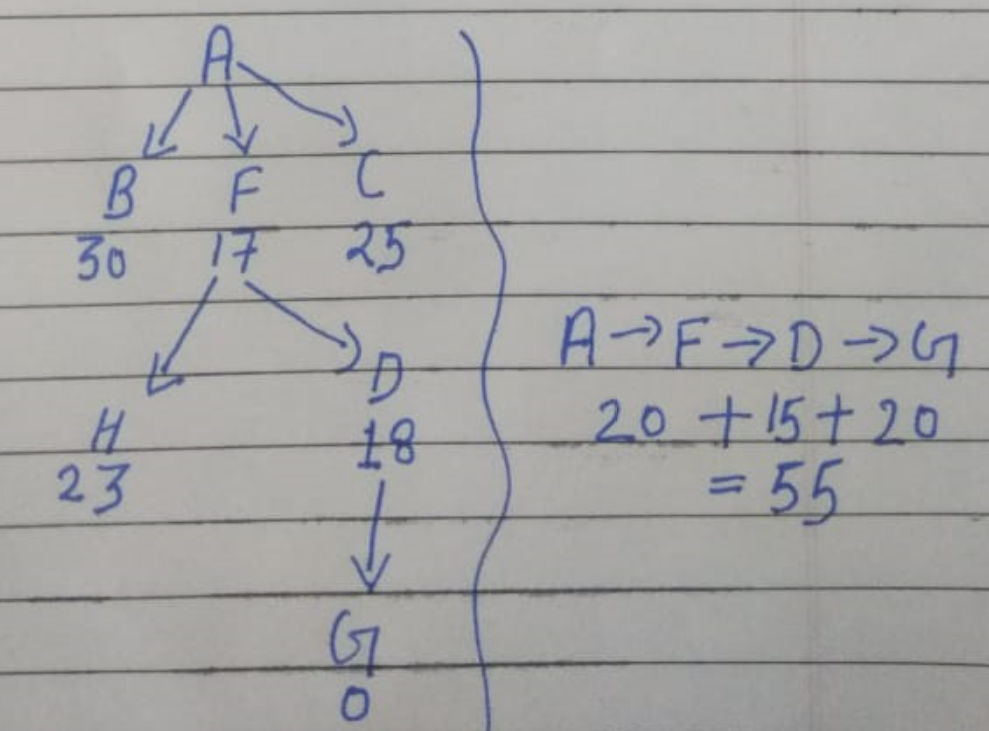 A
B F C
30 17 25
H D
23 18
G
0
A → F → D → G
20 + 15 + 20
= 55